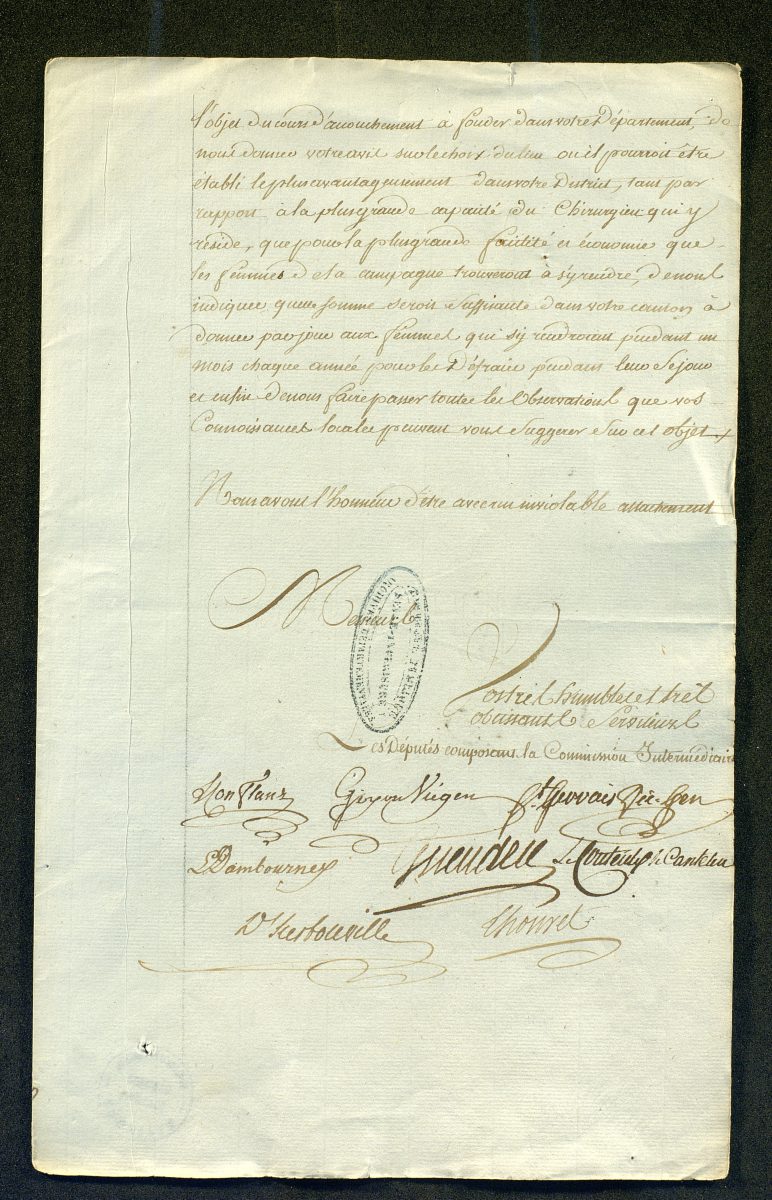 l'objet du cours d'accouchement à fonder dans votre Département, de
nous donner votre avis sur le choix du lieu où il pourroit être
établi le plus avantageusement dans votre District, tant par
rapport à la plus grande capacité du Chirurgien qui y
réside, que pour la plus grande facilité et économie que
les femmes de la campagne trouveront à s'y rendre, de nous
indiquer quelle somme seroit suffisante dans votre canton à
donner par jour aux femmes qui s'y rendroient pendant un
mois chaque année pour les Défraier pendant leur Séjour
et enfin de nous faire passer toutes les Observations que vos
Connoissances locales peuvent vous Suggerer Sur cet objet
Nous avons l'honneur d'être avec un inviolable attachement
Messieurs
ARCHIVES DÉPARTEMENTALES
SEINE-INFÉRIEURE
Vos très humbles et très
obéissants Serviteurs
Les Députés composant la Commission Intermédiaire
Gén. St. Gervais Vic. Gen
L. Dambourney Le Couteulx de Canteleu
D'herbouville Thouret